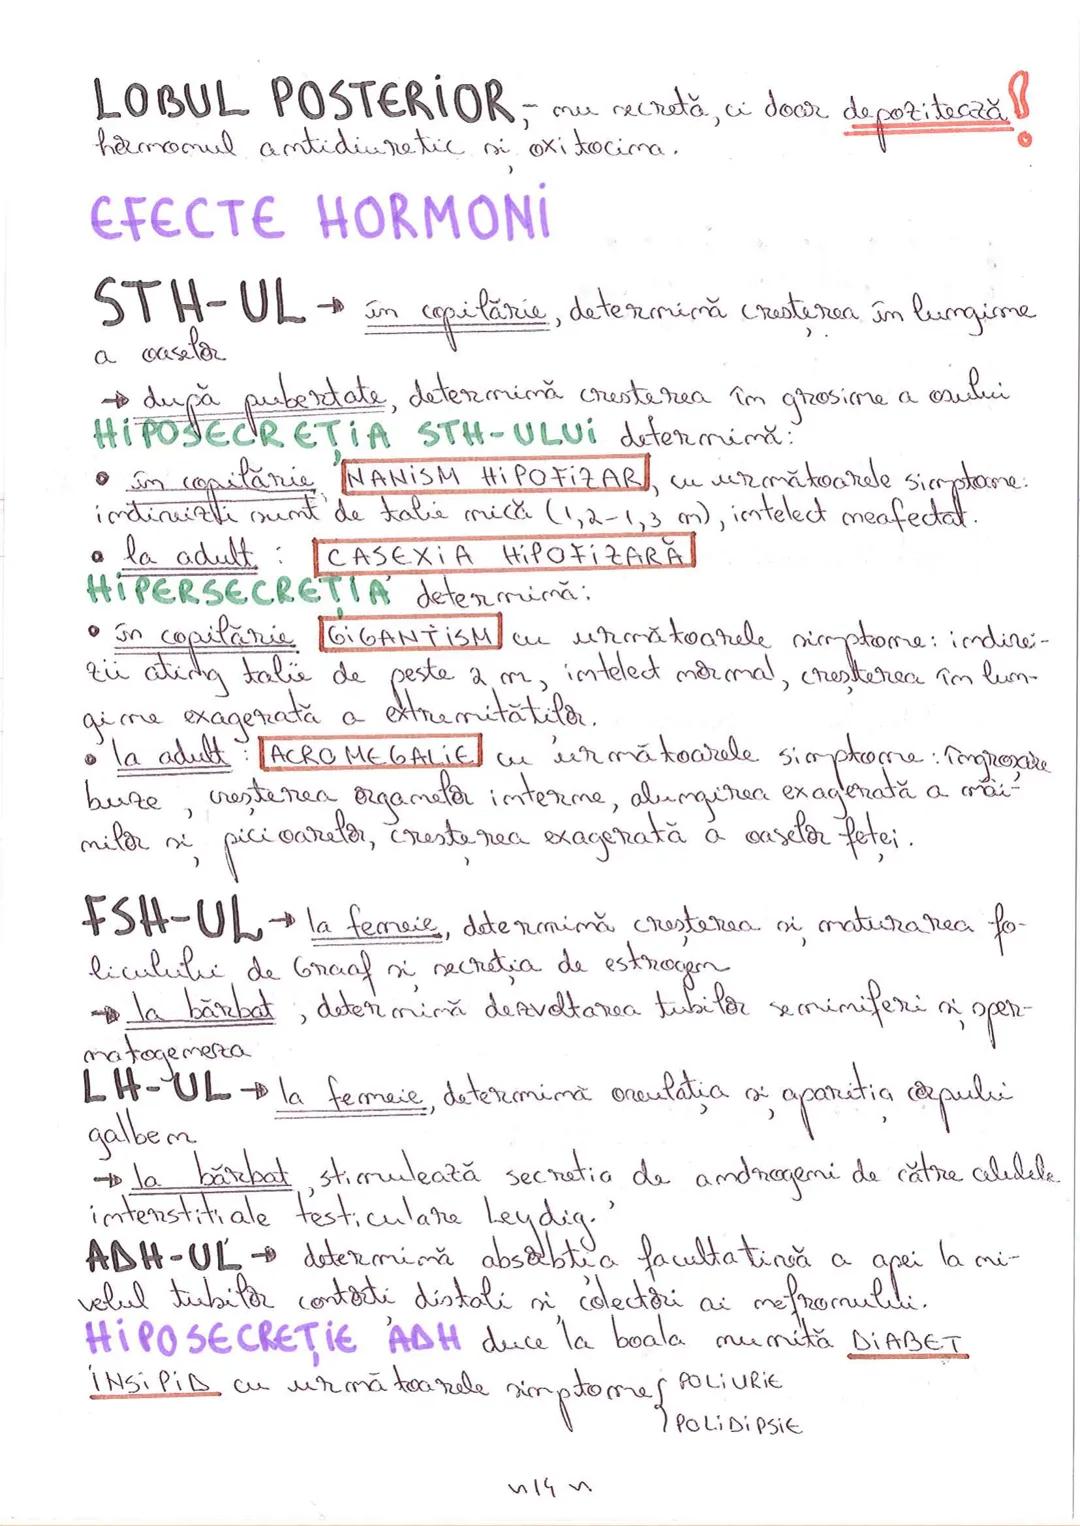 LOBUL POSTERIOR,- nu secretă, ci doar depozitează!
hormonul antidiuretic și oxitocina.
EFECTE HORMONI
STH-UL → în copilărie, determină creșterea în lungime
a oaselor
→ după pubertate, determină creșterea în grosime a osului
HIPOSECREȚIA STH-ULUI determină:
• în copilărie, NANISM HIPOFIZAR, cu următoarele simptome:
indivizii sunt de talie mică (1,2-1,3 m), intelect neafectat.
• la adult : CASEXIA HIPOFIZARĂ
HIPERSECREȚIA determină:
• în copilărie GIGANTISM cu următoarele simptome: indivi-
zii ating talii de peste 2 m, intelect normal, creșterea în lun-
gime exagerată a extremităților.
• la adult : ACROMEGALIE cu următoarele simptome: îngroșare
buze, creșterea organelor interne, alungirea exagerată a mâi-
nilor și picioarelor, creșterea exagerată a oaselor feței.
FSH-UL → la femeie, determină creșterea și maturarea fo-
liculului de Graaf și secreția de estrogen
→ la bărbat, determină dezvoltarea tubilor seminiferi și sper-
matogeneza
LH-UL → la femeie, determină ovulația și apariția corpului
galben
→ la bărbat, stimulează secreția de androgeni de către celulele
interstițiale testiculare Leydig.
ADH-UL → determină absorbția facultativă a apei la ni-
velul tubilor contorți distali și colectori ai nefronului.
HIPOSECREȚIE ADH duce la boala numită DIABET
INSIPID cu următoarele simptome { POLIURIE
POLIDIPSIE
~14~